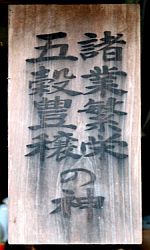 諸業繁栄
五穀豊穣の神